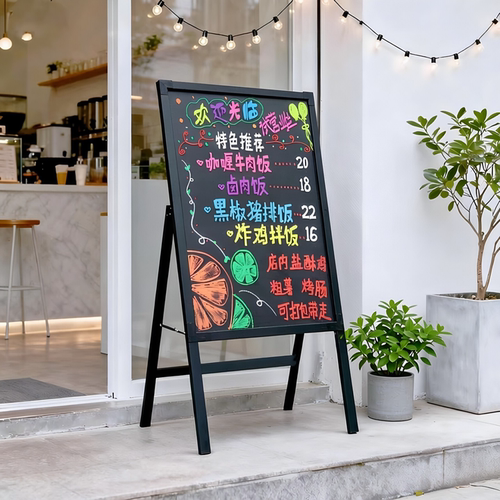 欢迎光临
特色推荐
咖喱牛肉饭……20
卤肉饭……18
黑椒猪排饭……22
炸鸡拌饭……16
店内盐酥鸡
粗薯 烤肠
可打包带走